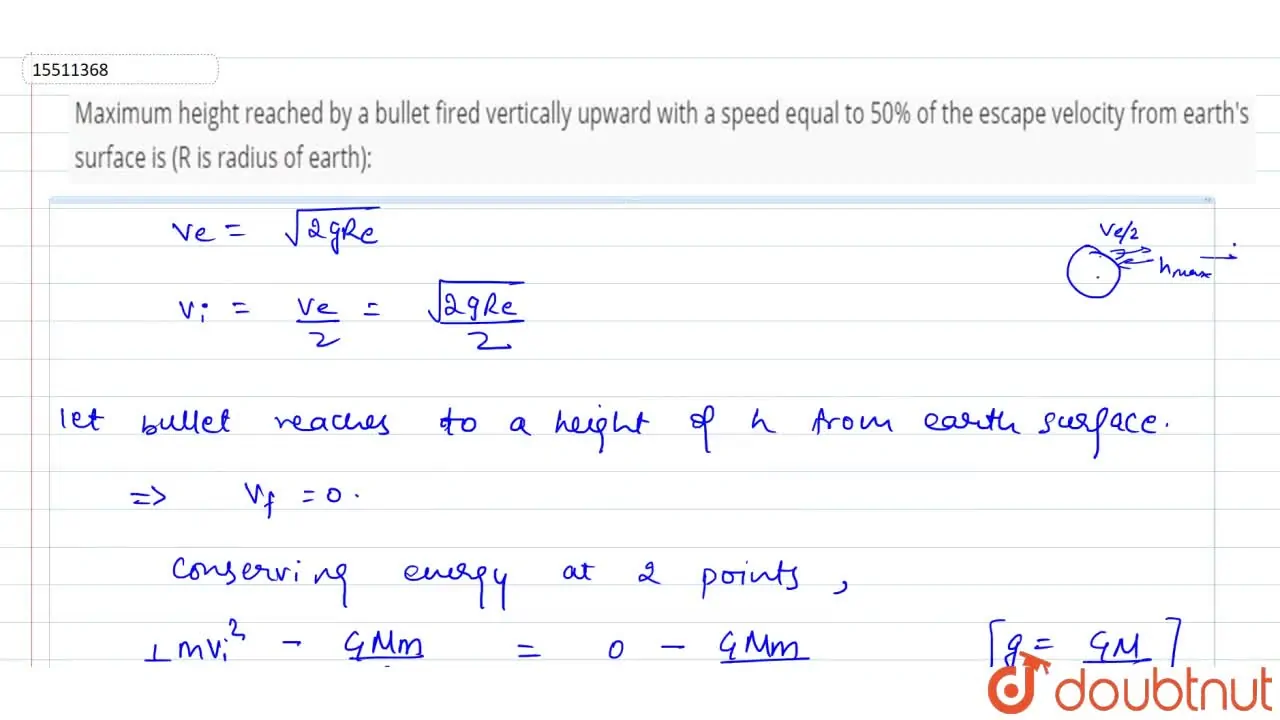 15511368
Maximum height reached by a bullet fired vertically upward with a speed equal to 50% of the escape velocity from earth's
surface is (R is radius of earth):
ve = √2gRe
ve/2
hmax
vi = ve/2 = √2gRe/2
let bullet reaches to a height of h from earth surface.
=> vf = 0.
Conserving energy at 2 points,
1 mvi² - GMm = 0 - GMm [g = GM]
doubtnut